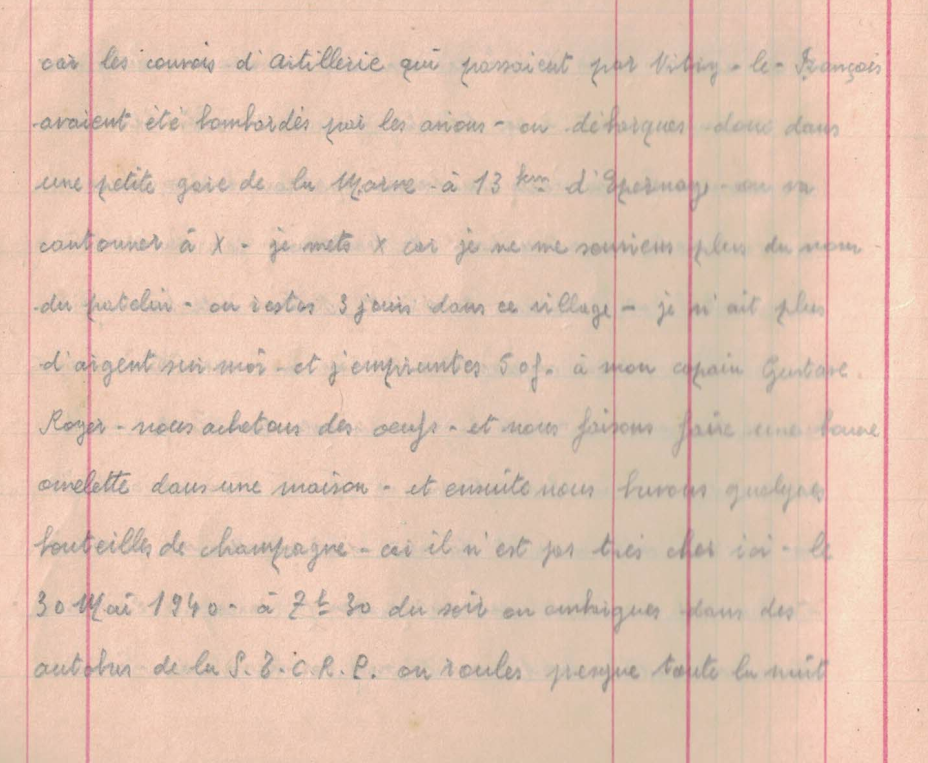 car les convois d'Artillerie qui passaient par Vitry-le-François
avaient été bombardés par les avions - on débarques donc dans
une petite gare de la Marne - à 13 km d'Epernay - on va
cantonner à X - je mets X car je ne me souviens plus du nom
du patelin - on restes 3 jours dans ce village - je n'ait plus
d'argent sur moi - et j'empruntes 50f. à mon copain Gustave
Royer - nous achetons des oeufs - et nous faisons faire une bonne
omelette dans une maison - et ensuite nous buvons quelques
bouteilles de champagne - car il n'est pas très cher ici - le
30 Mai 1940 - à 7h30 du soir on embarques dans des
autobus de la S.T.C.R.P. on roules presque toute la nuit